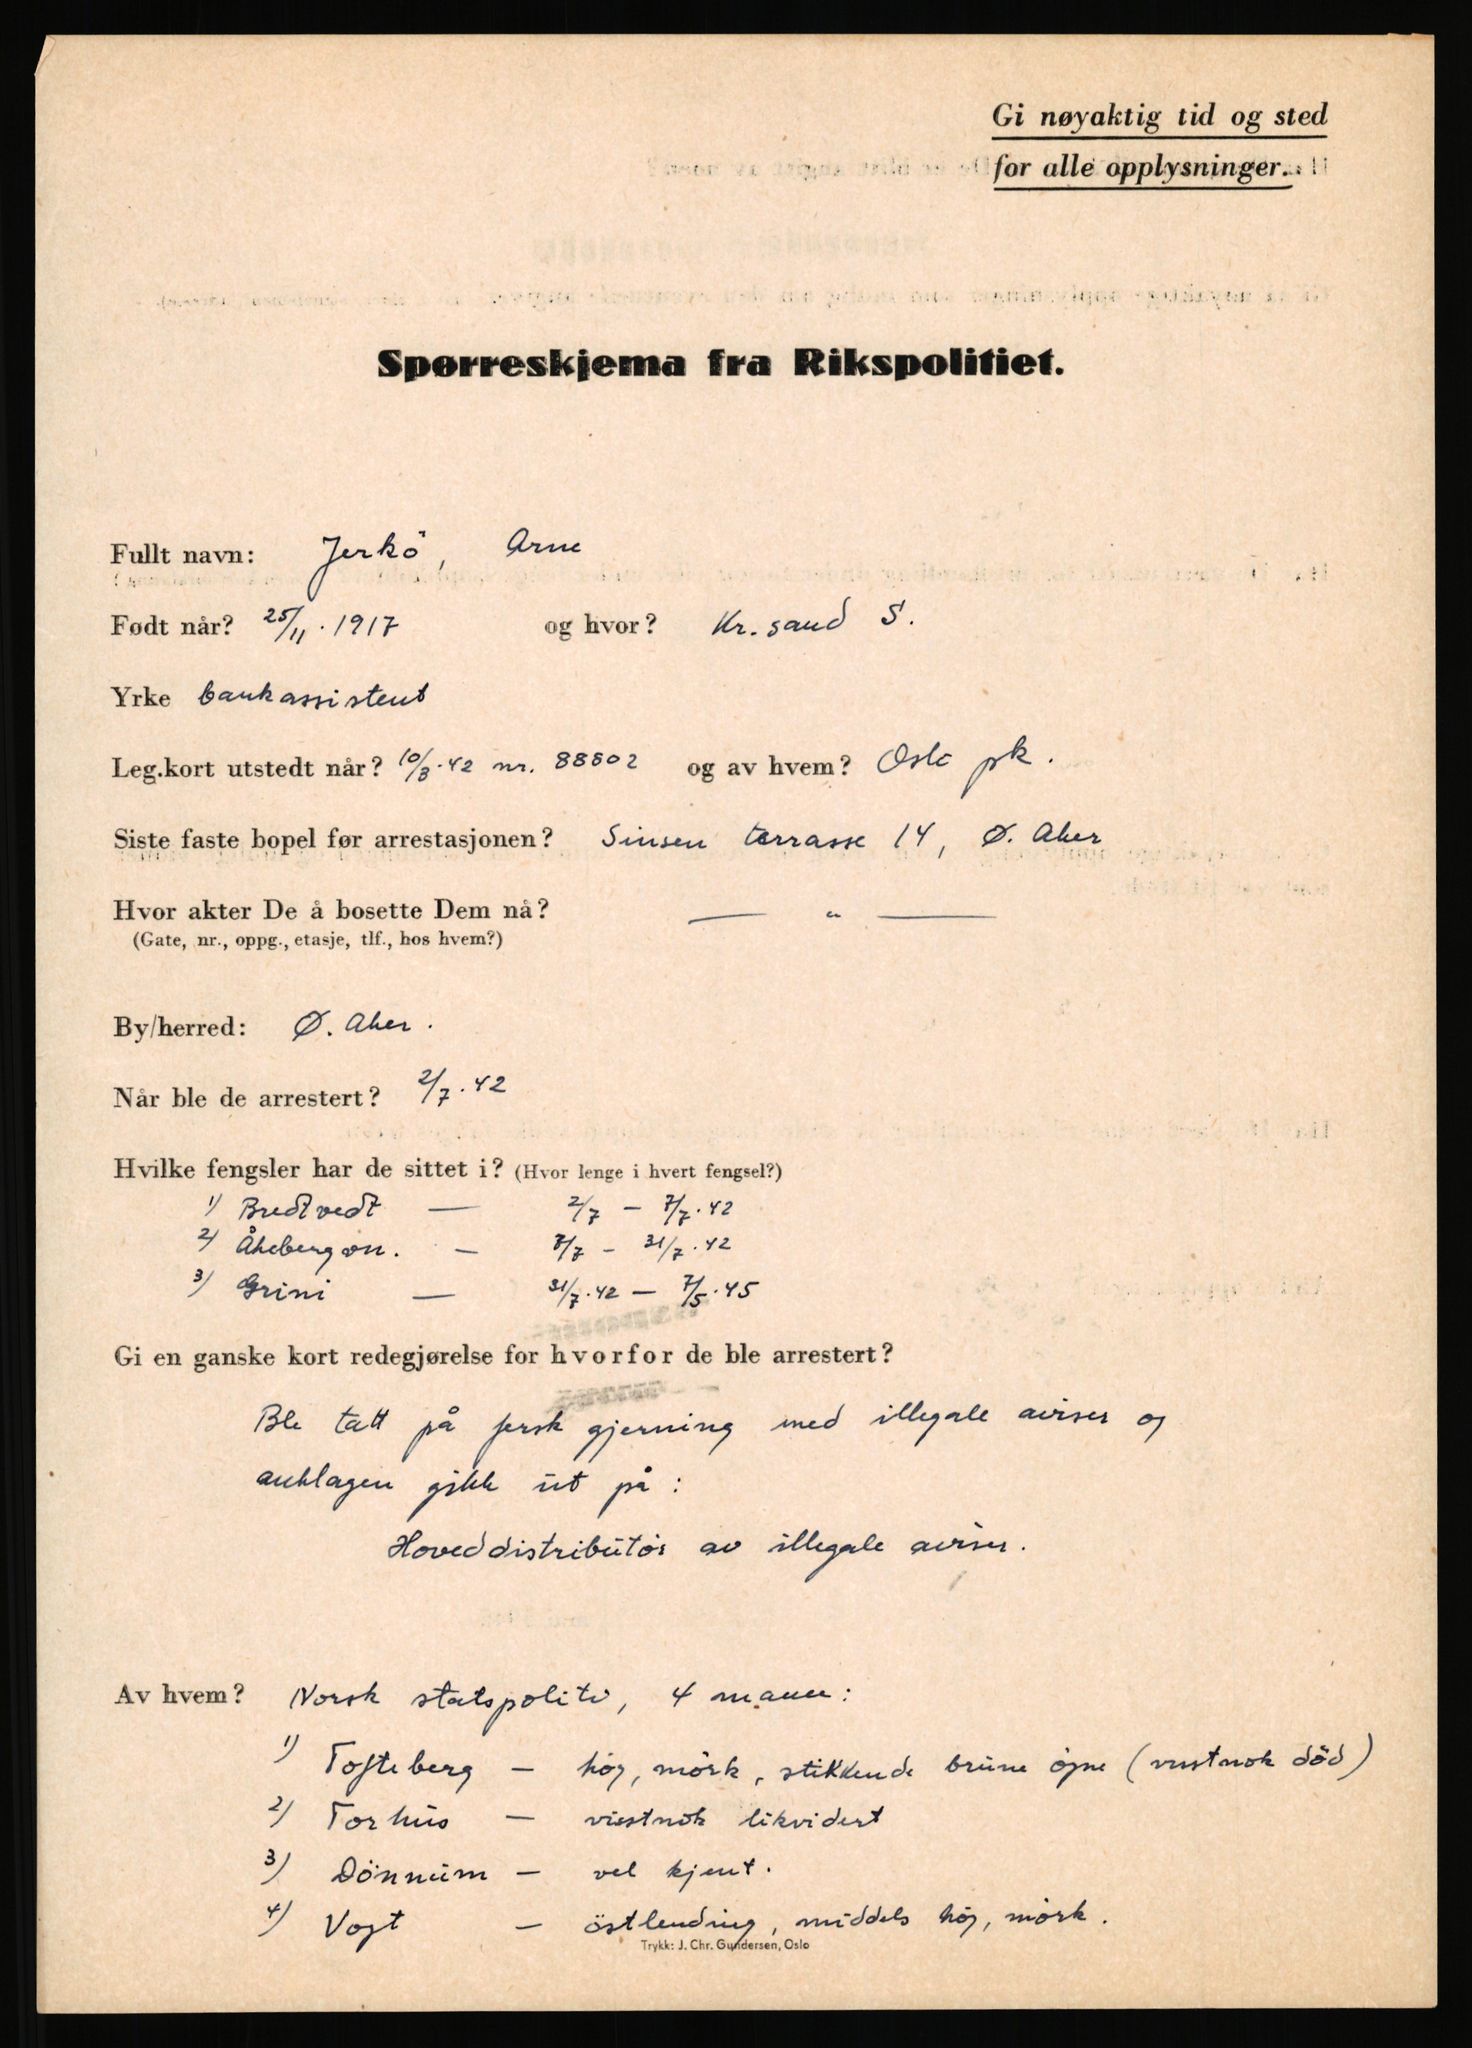 Gi nøyaktig tid og sted
for alle opplysninger.
Spørreskjema fra Rikspolitiet.
Fullt navn: Jerkö, Arne
Født når? 25/11.1917 og hvor? Kr.sand S.
Yrke bankassistent
Leg.kort utstedt når? 10/3.42 nr. 88802 og av hvem? Oslo pk.
Siste faste bopel før arrestasjonen? Sinsen terrasse 14, Ø. Aker
Hvor akter De å bosette Dem nå? — „ —
(Gate, nr., oppg., etasje, tlf., hos hvem?)
By/herred: Ø. Aker.
Når ble de arrestert? 2/7.42
Hvilke fengsler har de sittet i? (Hvor lenge i hvert fengsel?)
1) Bredtvedt — 2/7 — 7/7.42
2) Åkebergvn. — 7/7 — 31/7.42
3) Grini — 31/7.42 — 7/5.45
Gi en ganske kort redegjørelse for hvorfor de ble arrestert?
Ble tatt på fersk gjerning med illegale aviser og
anklagen gikk ut på:
Hoveddistributör av illegale aviser.
Av hvem? Norsk statspoliti, 4 mann:
1) Tofteberg — höy, mörk, stikkende brune öyne (visstnok död)
2) Torhus — visstnok likvidert
3) Dönnum — vel kjent.
4) Vogt — östlending, middels höy, mörk.
Trykk: J. Chr. Gundersen, Oslo